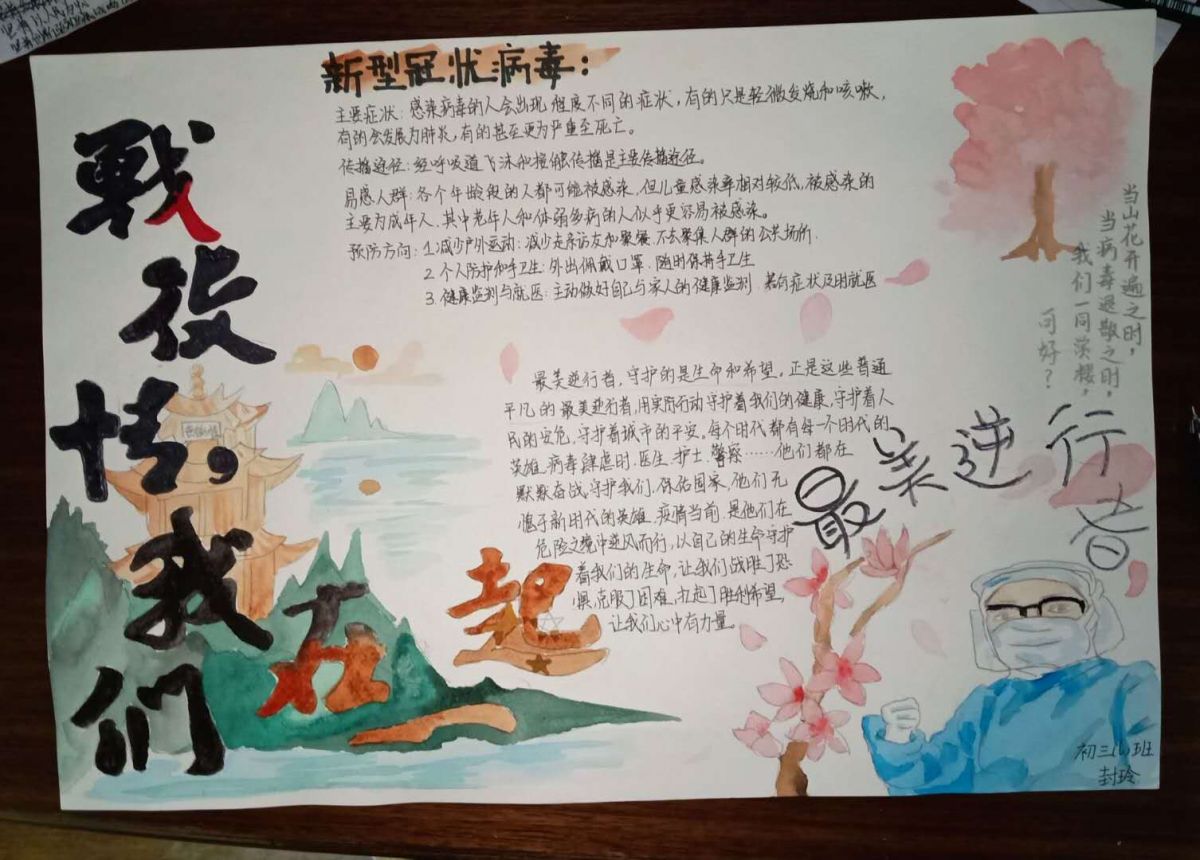 戰疫情,我们
在一起
新型冠状病毒:
主要症状:感染病毒的人会出现程度不同的症状,有的只是轻微发烧和咳嗽,
有的会发展为肺炎,有的甚至更为严重至死亡。
传播途径:经呼吸道飞沫和接触传播是主要传播途径。
易感人群:各个年龄段的人都可能被感染,但儿童感染率相对较低,被感染的
主要为成年人,其中老年人和体弱多病的人似乎更容易被感染。
预防方向:1.减少户外运动:减少走亲访友和聚餐,不去聚集人群的公共场所.
2.个人防护和手卫生:外出佩戴口罩,随时保持手卫生
3.健康监测与就医:主动做好自己与家人的健康监测,若有症状及时就医
当山花开遍之时,
当病毒退散之时,
我们一同 楼,
可好?
最美逆行者,守护的是生命和希望。正是这些普通
平凡的最美逆行者,用实际行动守护着我们的健康,守护着人
民的安危,守护着城市的平安。每个时代都有每一个时代的
英雄,病毒肆虐时,医生,护士,警察……他们都在
默默奋战,守护我们,保佑国家,他们无
愧于新时代的英雄,疫情当前,是他们在
危险文境中逆风而行,以自己的生命守护
着我们的生命,让我们战胜了恐
惧,克服了困难,扎起了胜利希望,
让我们心中有力量。
最美逆行者
初三(1)班
封玲